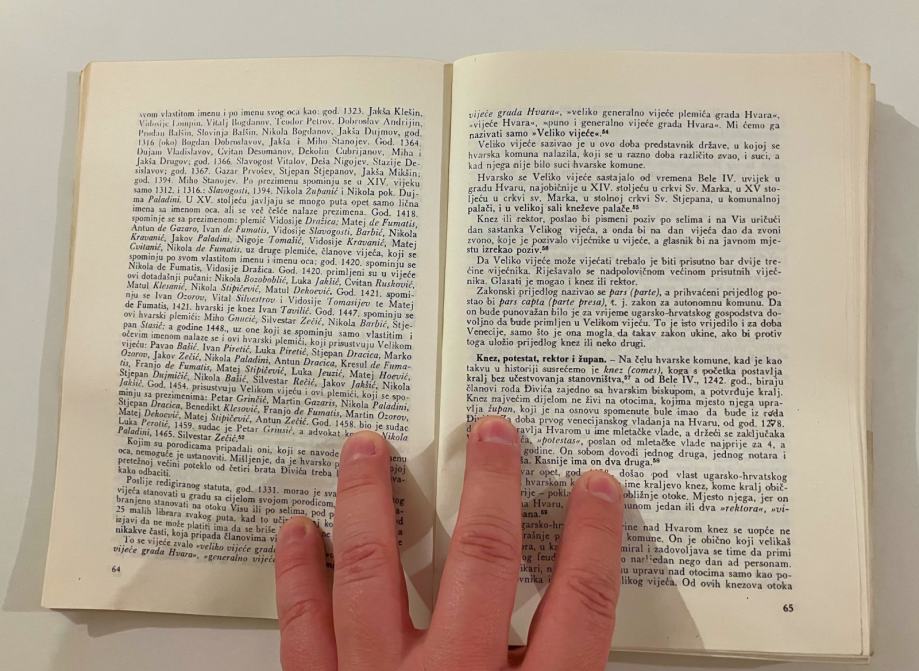 svom vlastitom imenu i po imenu svog oca kao: god. 1323. Jakša Klešin,
Vidosije Loupin, Vitalj Bogdanov, Teodor Petrov, Dobroslav Andrijin,
Prodan Balšin, Slovinja Balšin, Nikola Bogdanov, Jakša Dujmov, god.
1316 (oko) Bogdan Dobromslavov, Jakša i Miho Stanojev. God. 1364.
Dujam Vladislavov, Cvitan Desumanov, Dekolin Cubrijanov, Miha i
Jakša Drugov; god. 1366. Slavogost Vitalov, Deša Nigojev, Stazije De-
sislavov; god. 1367. Gazar Prvošev, Stjepan Stjepanov, Jakša Mikšin;
god. 1394. Miho Stanojev. Po prezimenu spominju se u XIV. vijeku
samo 1312. i 1316.: Slavogosti, 1394. Nikola Županić i Nikola pok. Duj-
ma Paladini. U XV. stoljeću javljaju se mnogo puta opet samo lična
imena sa imenom oca, ali se već češće nalaze prezimena. God. 1418.
spominje se sa prezimenom: plemić Vidosije Dražica; Matej de Fumatis,
Antun de Gazaro, Ivan de Fumatis, Vidosije Slavogosti, Barbić, Nikola
Kravanić, Jakov Paladini, Nigoje Tomašić, Vidosije Kravanić, Matej
Cvitanić, Nikola de Fumatis, uz druge plemiće, članove vijeća, koji se
spominju po svom vlastitom imenu i imenu oca; god. 1420. spominju se
Nikola de Fumatis, Vidosije Dražica. God. 1420. primljeni su u vijeće
ovi dotadašnji pučani: Nikola Bozoboblić, Luka Jaklić, Cvitan Rusković,
Matul Klesanić, Nikola Stipičević, Matul Dehoević. God. 1421. spomi-
nju se Ivan Ozorov, Vital Silvestrov i Vidosije Tomasijev te Matej
de Fumatis, 1421. hvarski je knez Ivan Tavilić. God. 1447. spominju se
ovi hvarski plemići: Miho Gnucić, Silvestar Zečić, Nikola Barbić, Stje-
pan Stasić; a godine 1448., uz one koji se spominju samo vlastitim i
očevim imenom nalaze se i ovi hvarski plemići, koji prisustvuju Velikom
vijeću: Pavao Bašić, Ivan Piretić, Luka Piretić, Stjepan Dracica, Marko
Ozorov, Jakov Zečić, Nikola Paladini, Antun Dracica, Kresul de Fuma-
tis, Franjo de Fumatis, Matej Stipičević, Luka Jeuzić, Matej Hoević,
Stjepan Dujmičić, Nikola Bašić, Silvestar Rečić, Jakov Jakšić, Nikola
Jakšić. God. 1454. prisustvuju Velikom vijeću i ovi plemići, koji se spo-
minju sa prezimenima: Petar Grinčić, Martin Gazaris, Nikola Paladini,
Stjepan Dracica, Benedikt Klesović, Franjo de Fumatis, Martin Ozorov,
Matej Dehoević, Matej Stipičević, Antun Zečić. God. 1458. bio je sudac
Luka Perotić, 1459. sudac je Petar Grinsić, a advokat Nikola
Paladini, 1465. Silvestar Zečić.⁵²
Kojim su porodicama pripadali oni, koji se navode
oca, nemoguće je ustanoviti. Mišljenje, da je hvarsko
pretežnoj većini poteklo od četiri brata Divića treba
kao odbaciti.
Poslije redigiranog statuta, god. 1331. morao je sva
vijeća stanovati u gradu sa cijelom svojom porodicom,
branjeno stanovati na otoku Visu ili po selima, pod
25 malih librara svakog puta, kad to
izjavi da ne može platiti ima da se briše
nikakve časti, koja pripada članovima
To se vijeće zvalo »veliko vijeće
vijeće grada Hvara«, »generalno vijeće
64
vijeće grada Hvara«, »veliko generalno vijeće plemića grada Hvara«,
»vijeće Hvara«, »puno i generalno vijeće grada Hvara«. Mi ćemo ga
nazivati samo »Veliko vijeće«.⁵⁴
Veliko vijeće sazivao je u ovo doba predstavnik države, u kojoj se
hvarska komuna nalazila, koji se u razno doba različito zvao, i suci, a
kad njega nije bilo suci hvarske komune.
Hvarsko se Veliko vijeće sastajalo od vremena Bele IV. uvijek u
gradu Hvaru, najobičnije u XIV. stoljeću u crkvi Sv. Marka, u XV sto-
ljeću u crkvi sv. Marka, u stolnoj crkvi Sv. Stjepana, u komunalnoj
palači, i u velikoj sali kneževe palače.⁵⁵
Knez ili rektor, poslao bi pismeni poziv po selima i na Vis uričući
dan sastanka Velikog vijeća, a onda bi na dan vijeća dao da zvoni
zvono, koje je pozivalo vijećnike u vijeće, a glasnik bi na javnom mje-
stu izrekao poziv.⁵⁶
Da Veliko vijeće može vijećati trebalo je biti prisutno bar dvije tre-
ćine vijećnika. Riješavalo se nadpolovičnom većinom prisutnih vijeć-
nika. Glasati je mogao i knez ili rektor.
Zakonski prijedlog nazivao se pars (parte), a prihvaćeni prijedlog po-
stao bi pars capta (parte presa), t. j. zakon za autonomnu komunu. Da
on bude punovažan bilo je za vrijeme ugarsko-hrvatskog gospodstva do-
voljno da bude primljen u Velikom vijeću. To je isto vrijedilo i za doba
Venecije, samo što je ona mogla, da takav zakon ukine, ako bi protiv
toga uložio prijedlog knez ili neko drugi.
Knez, potestat, rektor i župan. – Na čelu hvarske komune, kad je kao
takvu u historiji susrećemo je knez (comes), koga s početka postavlja
kralj bez učestvovanja stanovništva,⁵⁷ a od Bele IV., 1242. god., biraju
članovi roda Divića zajedno sa hvarskim biskupom, a potvrđuje kralj.
Knez najvećim dijelom ne živi na otocima, kojima mjesto njega upra-
vlja župan, koji je na osnovu spomenute bule imao da bude iz roda
doba prvog venecijanskog vladanja na Hvaru, od god. 1278.
Hvarom u ime mletačke vlade, a držeći se zaključaka
»potestas«, poslan od mletačke vlade najprije za 4, a
godine. On sobom dovodi jednog doktora, jednog notara i
Kasnije ima on dva druga.⁵⁸
opet, god. došao pod vlast ugarsko-hrvatskog
hvarskom ime kraljevo knez, kome kralj obič-
obližnje otoke. Mjesto njega, jer on
Hvaru, jedan ili dva »rektora«, »vi-
nad Hvarom knez se uopće ne
komune. On je obično velikaš
i zadovoljava se time da primi
jedan nego dan ad personam.
upravu nad otocima samo kao po-
vijeća. Od ovih knezova otoka
65